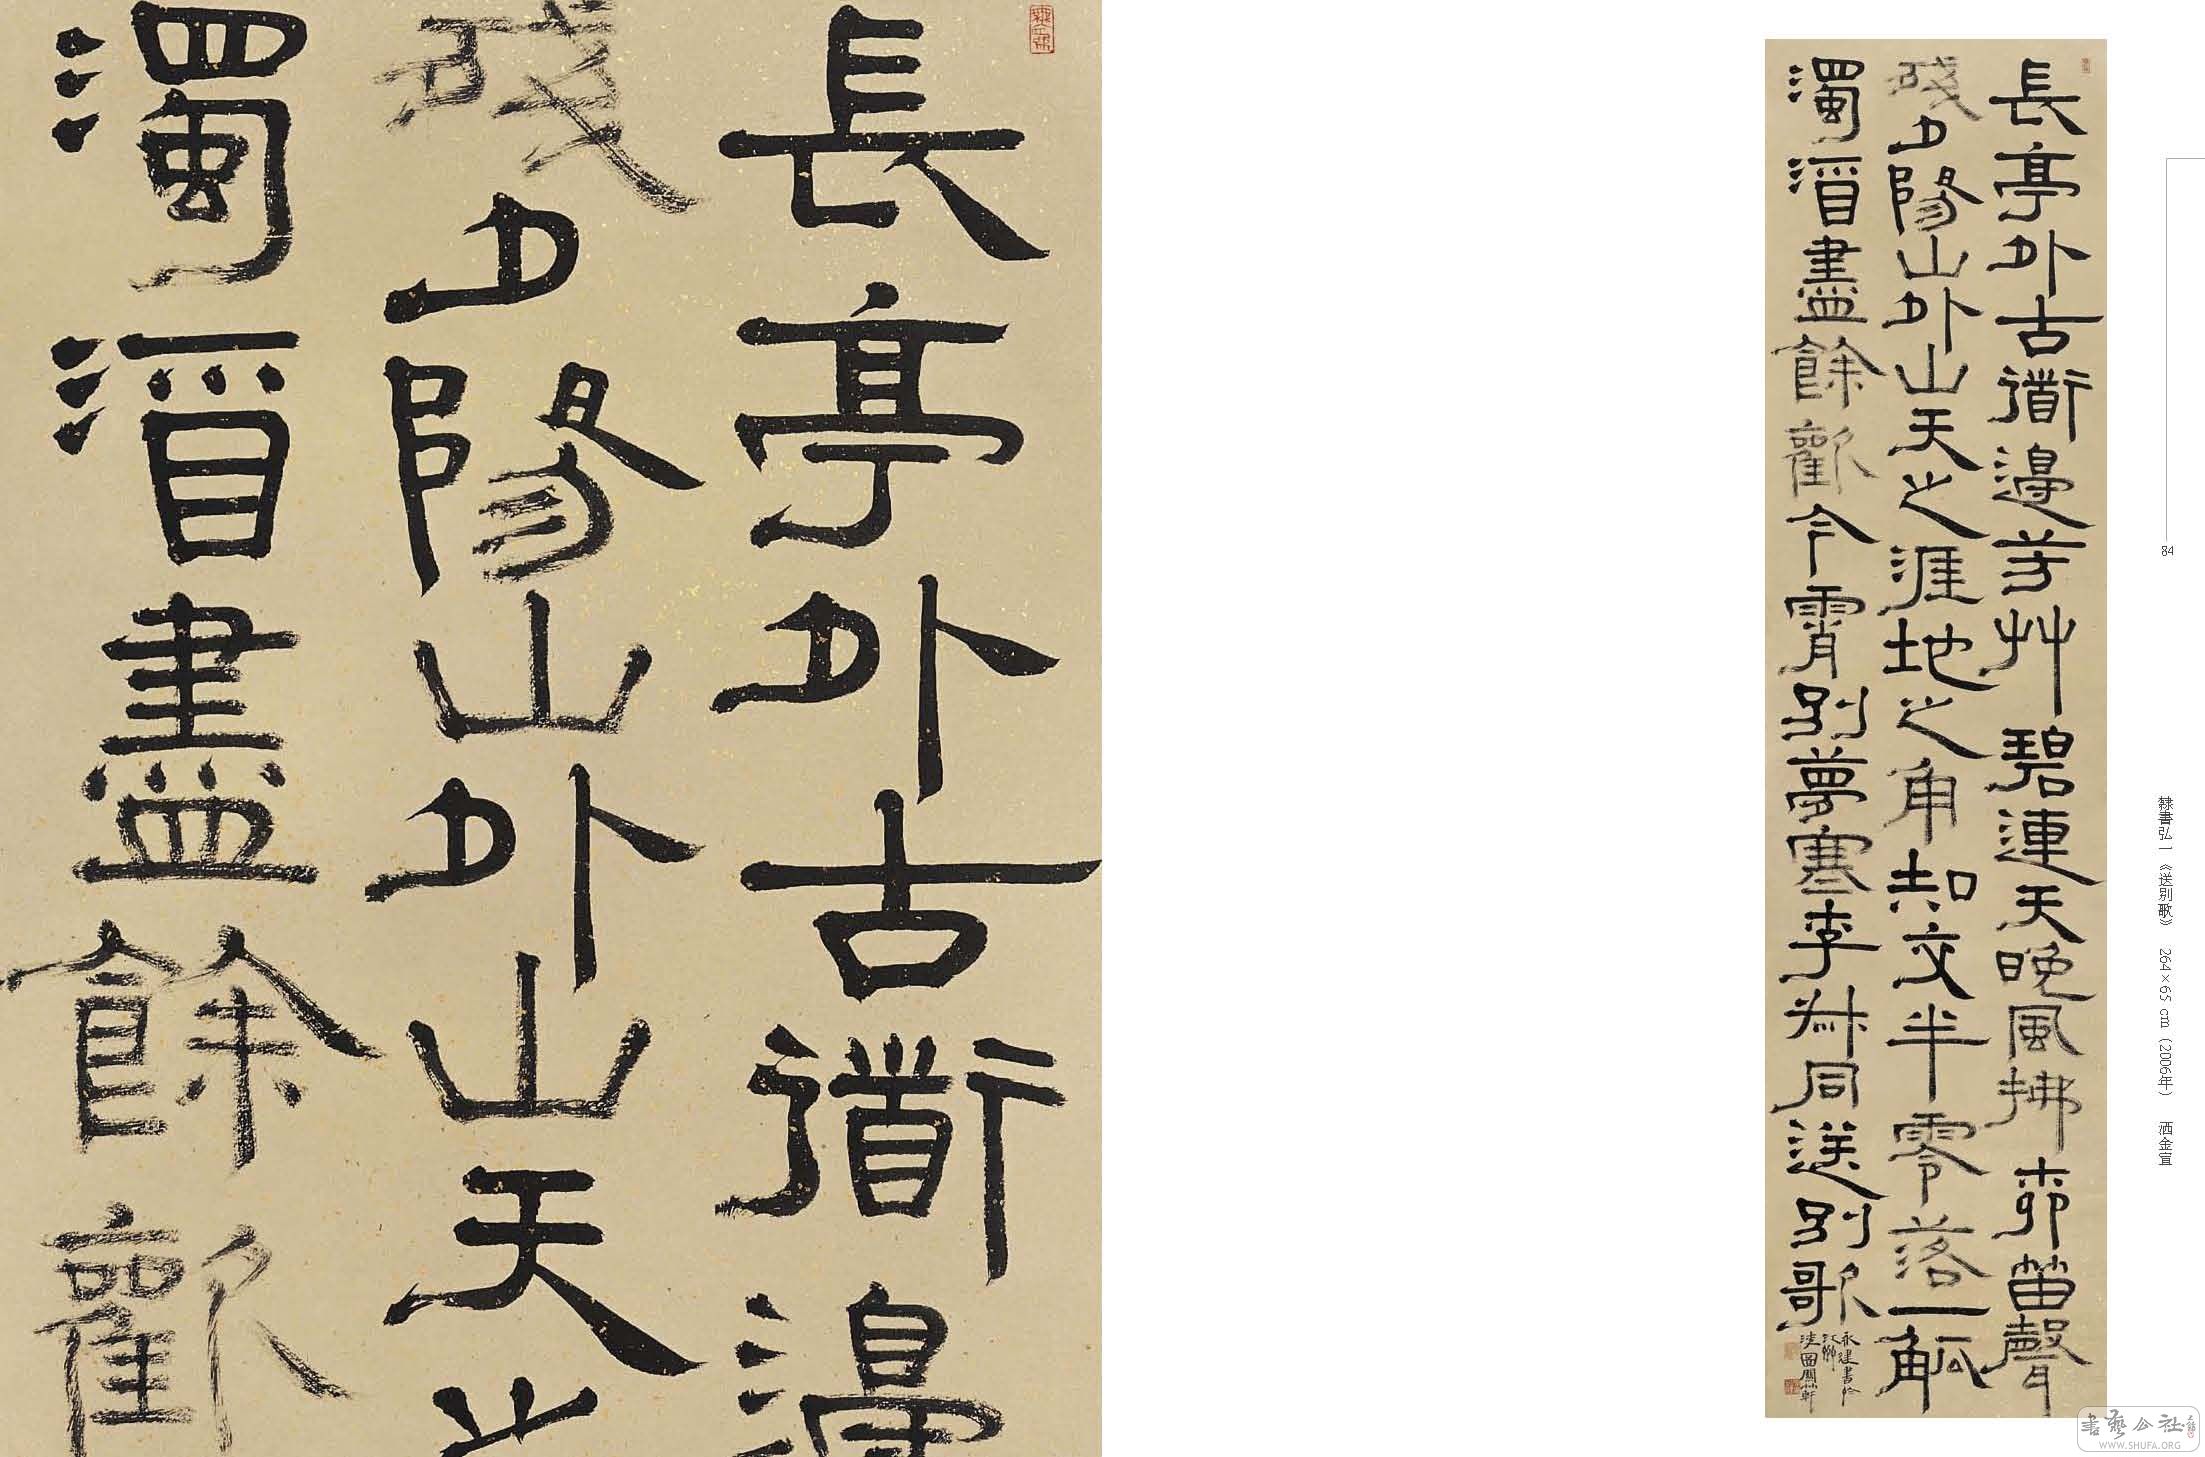 長亭外古衜邊
殘夕陽山外山天之
濁酒盡餘歡
長亭外古衜邊芳艸碧連天晚風拂柳笛聲
殘夕陽山外山天之涯地之角知交半零落一觚
濁酒盡餘歡今霄別夢寒李叔同送別歌
永建書於
84
隸書弘一《送別歌》 264×65 cm（2006年） 洒金宣
書藝公社
WWW.SHUFA.ORG